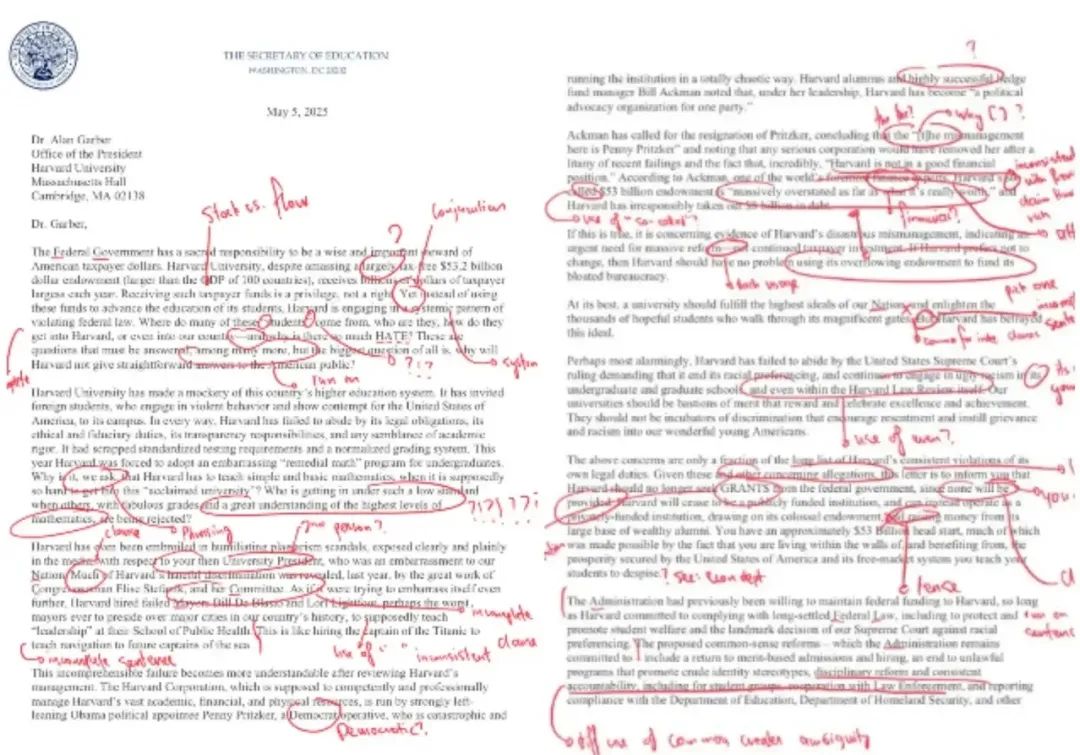 THE SECRETARY OF EDUCATION
WASHINGTON, DC 20202
May 5, 2025
Dr. Alan Garber
Office of the President
Harvard University
Massachusetts Hall
Cambridge, MA 02138
Stock vs. flow
Conjunction
Dr. Garber,
?
The Federal Government has a sacred responsibility to be a wise and important steward of
American taxpayer dollars. Harvard University, despite amassing a largely tax-free $53.2 billion
dollar endowment (larger than the GDP of 100 countries), receives billions of dollars of taxpayer
largess each year. Receiving such taxpayer funds is a privilege, not a right. Yet instead of using
these funds to advance the education of its students, Harvard is engaging in a systemic pattern of
violating federal law. Where do many of these "students" come from, who are they, how do they
get into Harvard, or even into our country—and why is there so much HATE? These are
questions that must be answered, among many more, but the biggest question of all is, why will
Harvard not give straightforward answers to the American public?
?!?
system
Run on
Harvard University has made a mockery of this country's higher education system. It has invited
foreign students, who engage in violent behavior and show contempt for the United States of
America, to its campus. In every way, Harvard has failed to abide by its legal obligations, its
ethical and fiduciary duties, its transparency responsibilities, and any semblance of academic
rigor. It had scrapped standardized testing requirements and a normalized grading system. This
year Harvard was forced to adopt an embarrassing "remedial math" program for undergraduates.
Why is it, we ask, that Harvard has to teach simple and basic mathematics, when it is supposedly
so hard to get into this "acclaimed university"? Who is getting in under such a low standard
when others, with fabulous grades and a great understanding of the highest levels of
mathematics, are being rejected?
?!?!?!
clause
phrasing
person?
Harvard has even been embroiled in humiliating plagiarism scandals, exposed clearly and plainly
in the media with respect to your then University President, who was an embarrassment to our
Nation. Much of Harvard's hateful discrimination was revealed, last year, by the great work of
Congresswoman Elise Stefanik, and her Committee. As if it were trying to embarrass itself even
further, Harvard hired failed Mayors Bill De Blasio and Lori Lightfoot, perhaps the worst
mayors ever to preside over major cities in our country's history, to supposedly teach
"leadership" at their School of Public Health. This is like hiring the captain of the Titanic to
teach navigation to future captains of the sea.
incomplete
clause
use of " "
inconsistent
incomplete sentence
This incomprehensible failure becomes more understandable after reviewing Harvard's
management. The Harvard Corporation, which is supposed to competently and professionally
manage Harvard's vast academic, financial, and physical resources, is run by strongly left-
leaning Obama political appointee Penny Pritzker, a Democrat operative, who is catastrophic and
Democratic?
?
running the institution in a totally chaotic way. Harvard alumnus and highly successful hedge
fund manager Bill Ackman noted that, under her leadership, Harvard has become "a political
advocacy organization for one party."
the the?
why [ ] ?
Ackman has called for the resignation of Pritzker, concluding that the "[t]he mismanagement
here is Penny Pritzker" and noting that any serious corporation would have removed her after a
litany of recent failings and the fact that, incredibly, "Harvard is not in a good financial
position." According to Ackman, one of the world's foremost finance experts, Harvard's so-
called $53 billion endowment is "massively overstated as far as what it's really worth," and
Harvard has irresponsibly taken on $8 billion in debt.
inconsistent
use of "so-called"
If this is true, it is concerning evidence of Harvard's disastrous mismanagement, indicating an
urgent need for massive reform—not continued taxpayer investment. If Harvard prefers not to
change, then Harvard should have no problem using its overflowing endowment to fund its
bloated bureaucracy.
dash usage
pick one
At its best, a university should fulfill the highest ideals of our Nation, and enlighten the
thousands of hopeful students who walk through its magnificent gates. But Harvard has betrayed
this ideal.
Perhaps most alarmingly, Harvard has failed to abide by the United States Supreme Court's
ruling demanding that it end its racial preferencing, and continues to engage in ugly racism in its
undergraduate and graduate schools, and even within the Harvard Law Review itself. Our
universities should be bastions of merit that reward and celebrate excellence and achievement.
They should not be incubators of discrimination that encourage resentment and instill grievance
and racism into our wonderful young Americans.
use of even?
The above concerns are only a fraction of the long list of Harvard's consistent violations of its
own legal duties. Given these and other concerning allegations, this letter is to inform you that
Harvard should no longer seek GRANTS from the federal government, since none will be
provided. Harvard will cease to be a publicly funded institution, and can instead operate as a
privately-funded institution, drawing on its colossal endowment, and raising money from its
large base of wealthy alumni. You have an approximately $53 Billion head start, much of which
was made possible by the fact that you are living within the walls of, and benefiting from, the
prosperity secured by the United States of America and its free-market system you teach your
students to despise.
tense
The Administration had previously been willing to maintain federal funding to Harvard, so long
as Harvard committed to complying with long-settled Federal Law, including to protect and
promote student welfare and the landmark decision of our Supreme Court against racial
preferencing. The proposed common-sense reforms – which the Administration remains
committed to – include a return to merit-based admissions and hiring, an end to unlawful
programs that promote crude identity stereotypes, disciplinary reform and consistent
accountability, including for student groups, cooperation with Law Enforcement, and reporting
compliance with the Department of Education, Department of Homeland Security, and other
run on
sentence
off use of commas creates ambiguity